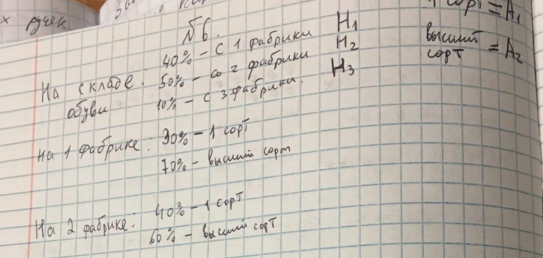 ручек
№6.
На складе обуви: 40% – с 1 фабрики H₁
50% – со 2 фабрики H₂
10% – с 3 фабрики. H₃
1 сорт = A₁
высший сорт = A₂
На 1 фабрике: 30% – 1 сорт
70% – высший сорт
На 2 фабрике: 40% – 1 сорт
60% – высший сорт